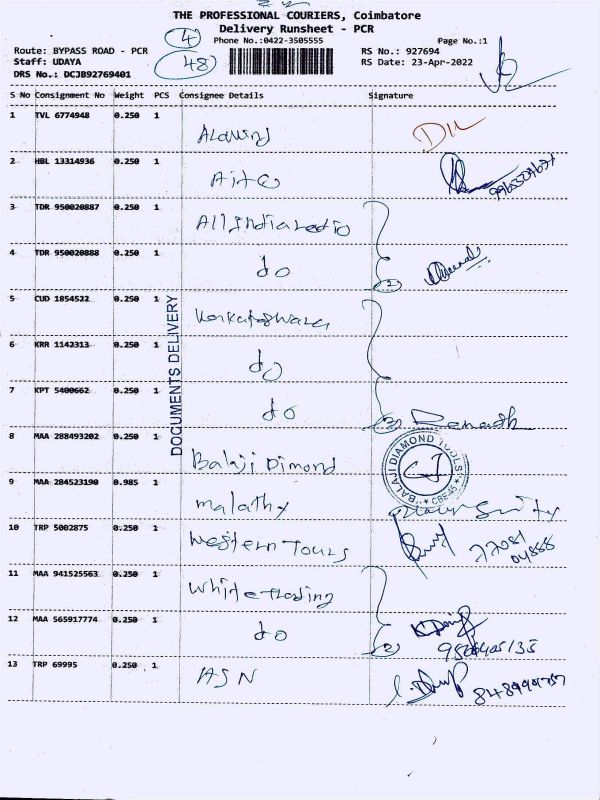 THE PROFESSIONAL COURIERS, Coimbatore
Delivery Runsheet - PCR
4 Phone No.:0422-3505555 Page No.:1
Route: BYPASS ROAD - PCR RS No.: 927694
Staff: UDAYA 48 RS Date: 23-Apr-2022
DRS No.: DCJB92769401
S No Consignment No Weight PCS Consignee Details Signature
1 TVL 6774948 0.250 1
2 HBL 13314936 0.250 1
3 TDR 950020887 0.250 1 All India radio
4 TDR 950020888 0.250 1 do 2
5 CUD 1854522 0.250 1
6 KRR 1142313 0.250 1 do
7 KPT 5400662 0.250 1 do 3
DOCUMENTS DELIVERY
8 MAA 288493202 0.250 1 Balaji Dimond
BALAJI DIAMOND TOOLS CBE-45
9 MAA 284523190 0.985 1 malathy
10 TRP 5002875 0.250 1 Western Tours 77081
04888
11 MAA 941525563 0.250 1 White trading
12 MAA 565917774 0.250 1 do 2
13 TRP 69995 0.250 1 ASN